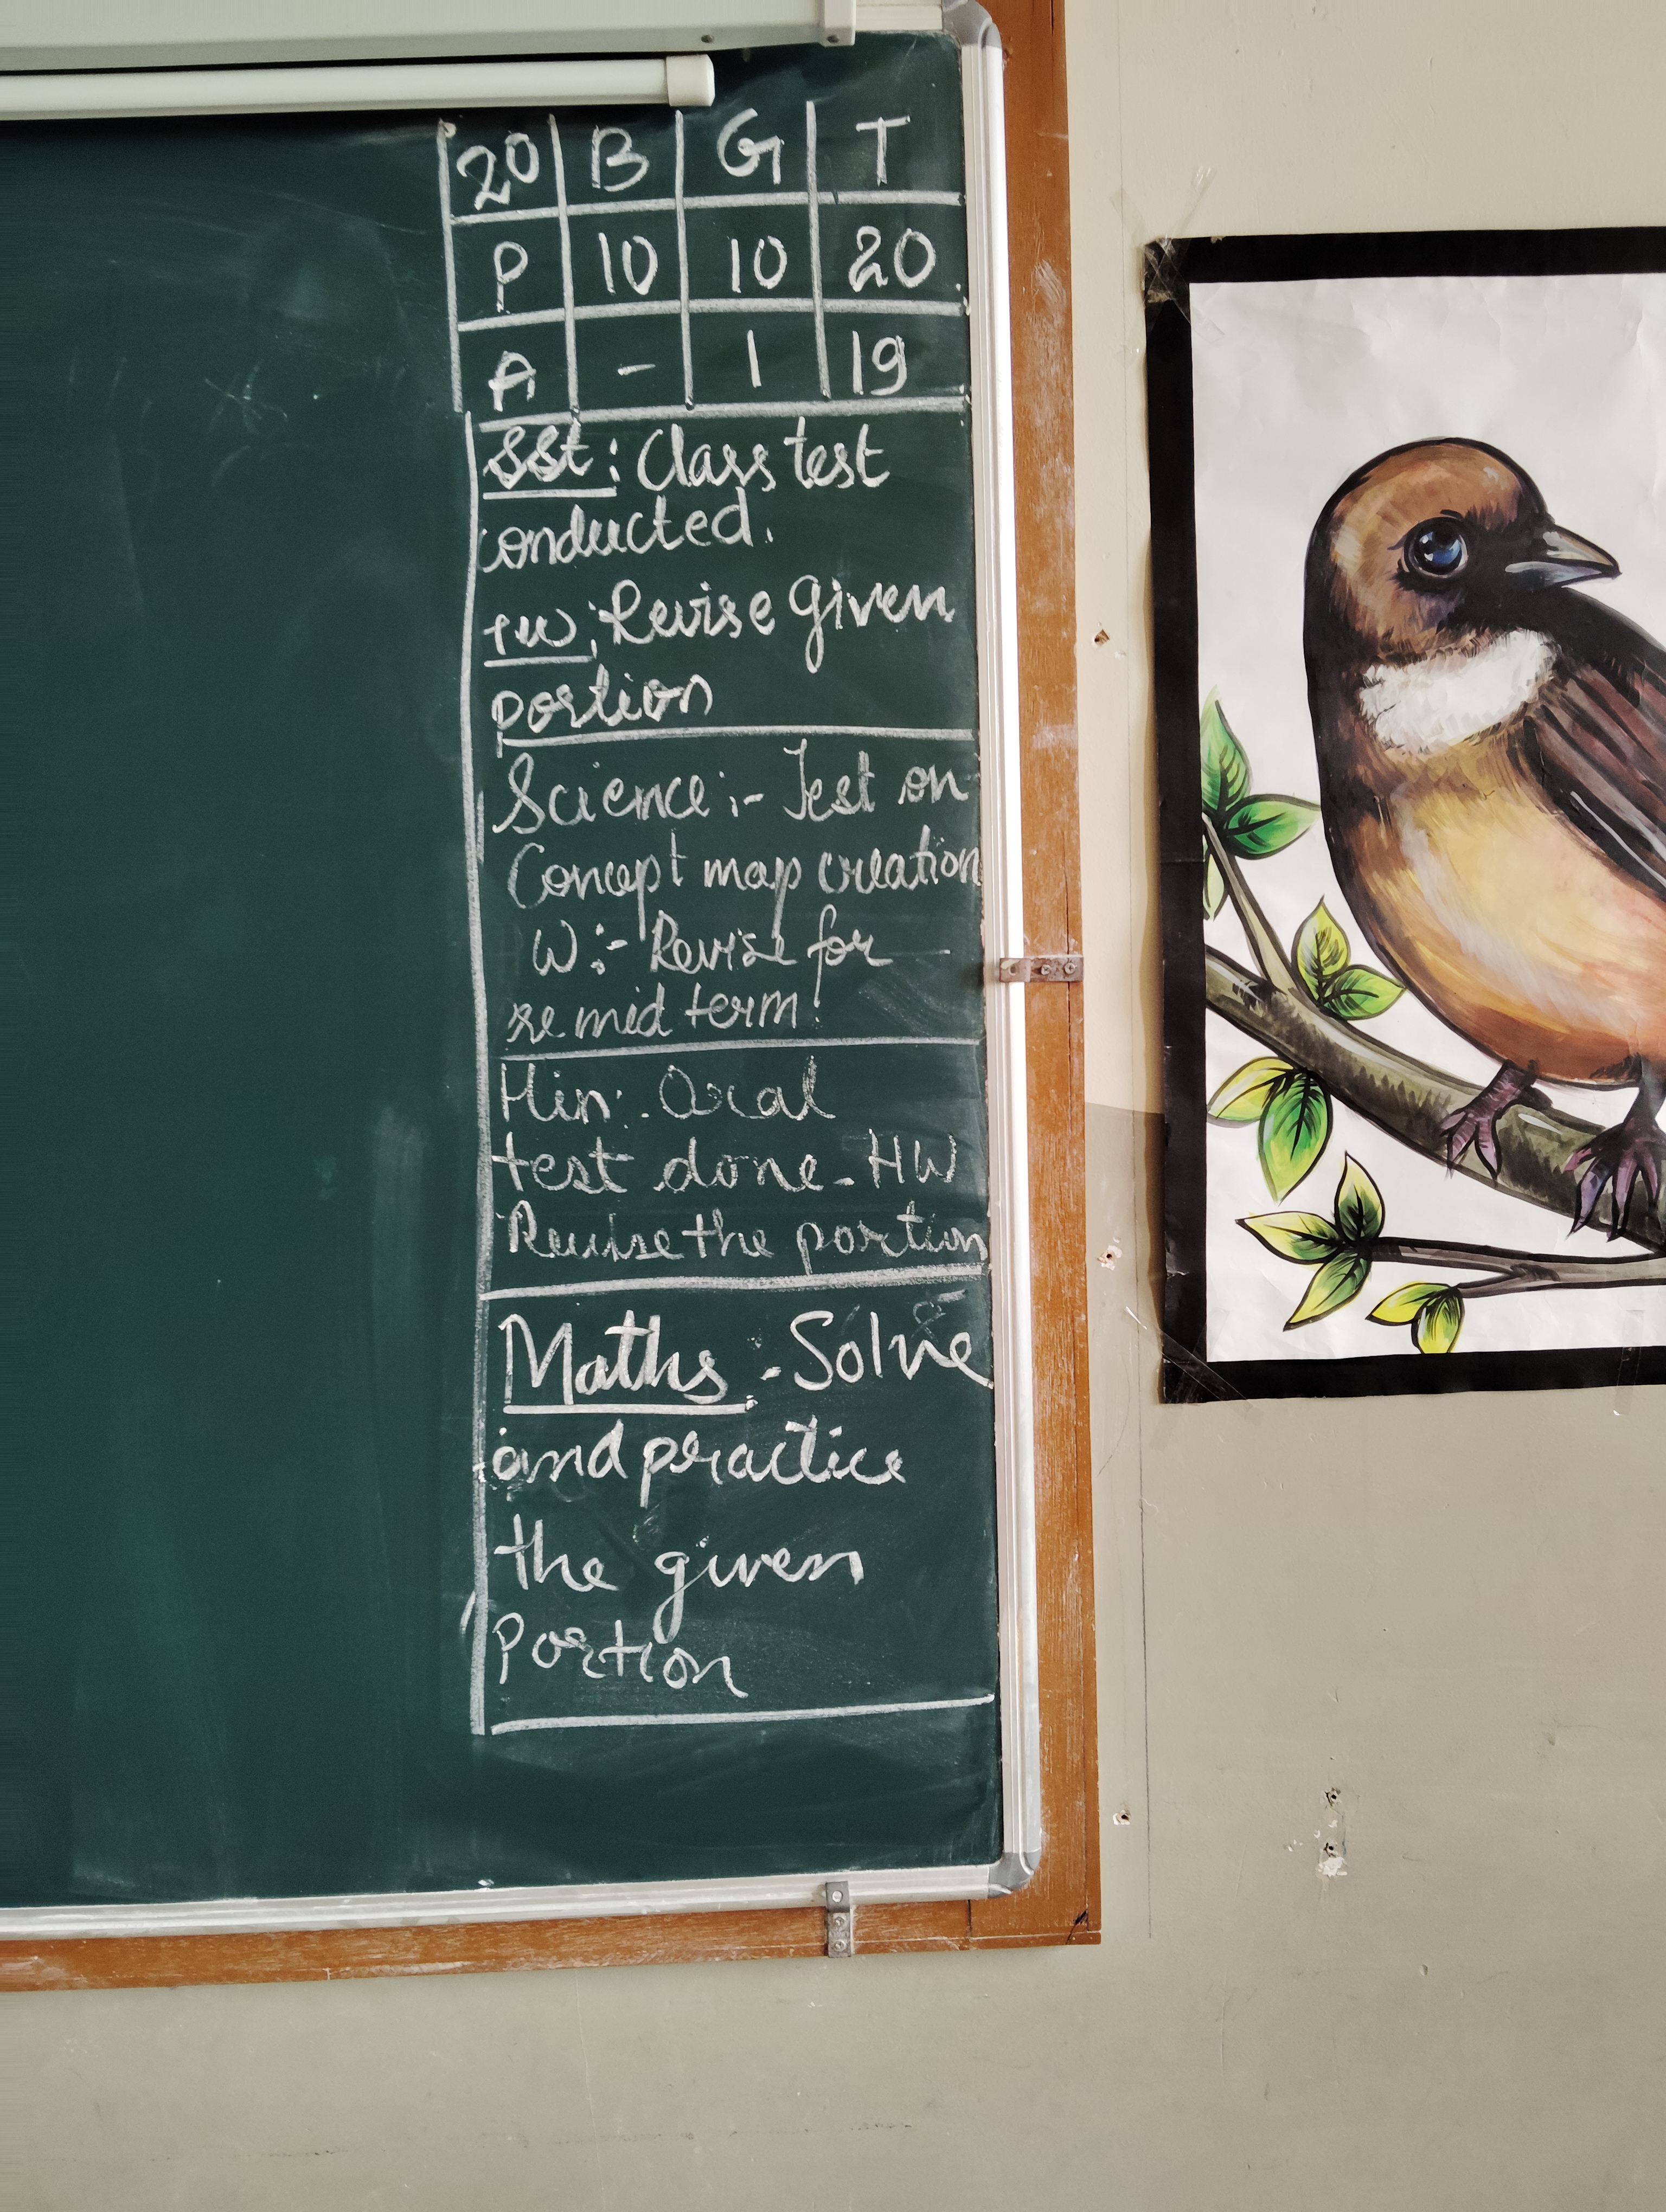 20 B G T
P 10 10 20
A - 1 19
SSt: Class test
conducted.
HW: Revise given
portion
Science:- Test on
Concept map creation
W:- Revise for
re mid term
Hin:- Oral
test done. HW
Revise the portion
Maths:- Solve
and practice
the given
Portion